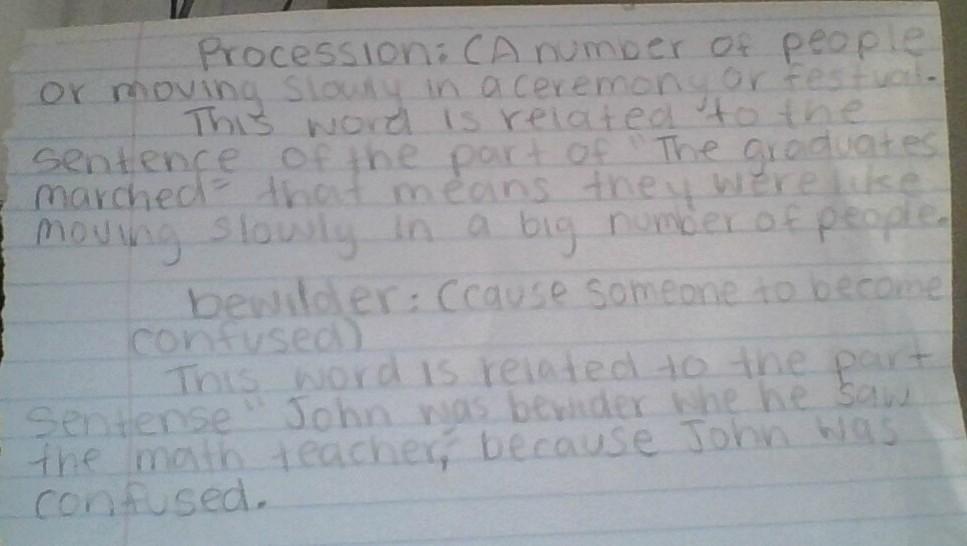 Procession: (A number of people
or moving slowly in a ceremony or festival.
This word is related to the
sentence of the part of "The graduates
marched" that means they were like
moving slowly in a big number of people.
bewilder: (cause someone to become
confused)
This word is related to the part
sentense "John was bewilder whe he saw
the math teacher," because John was
confused.